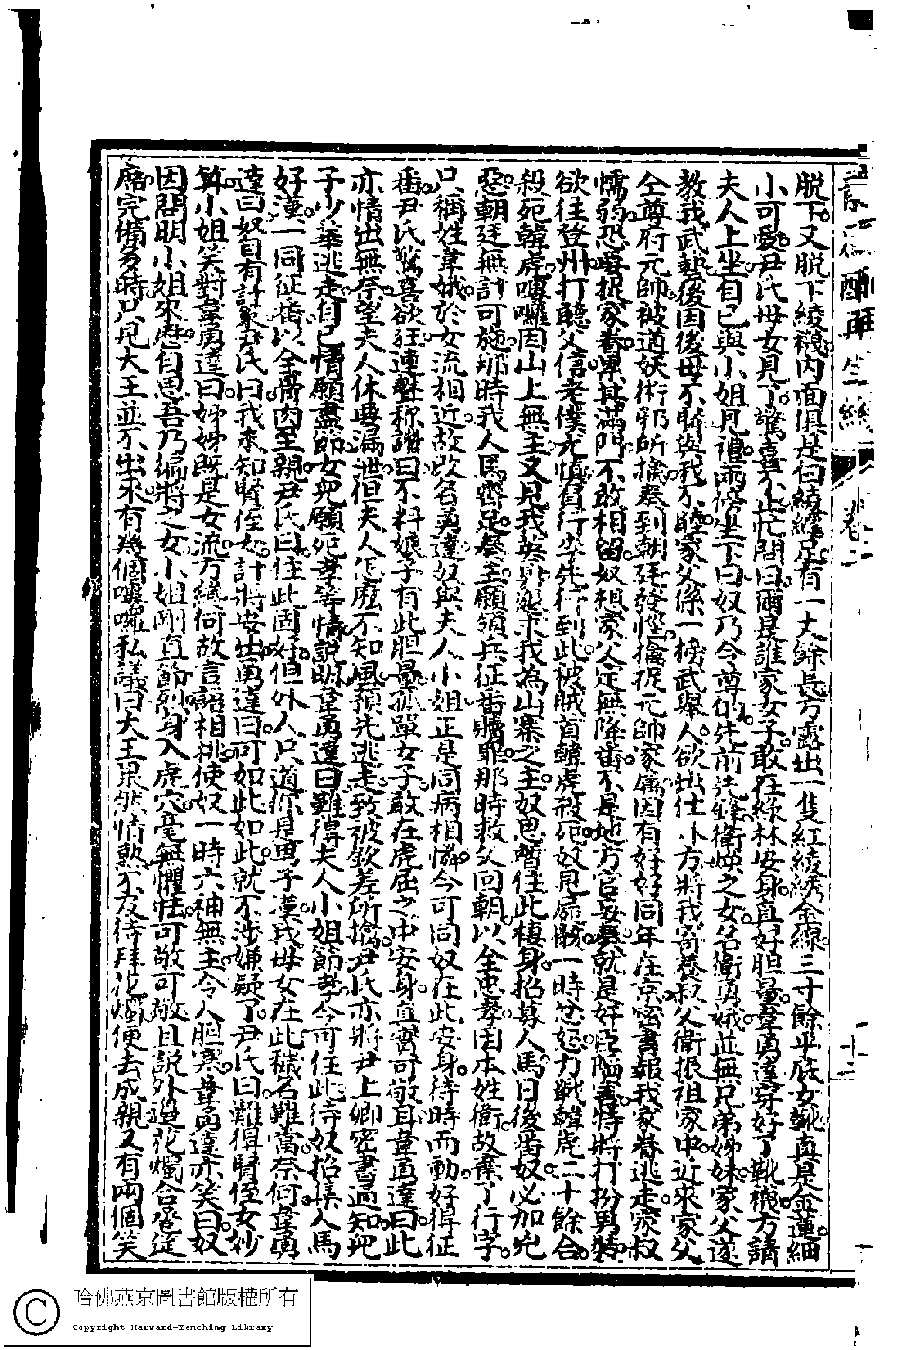 脱下又脱下綾襪内面俱是白綾纏足有一丈餘長方露出一隻紅綾綉金線三寸餘平底女靴真是金蓮細
小可愛尹氏母女見了驚喜不止忙問曰爾是誰家女子敢在綠林安身真好胆量韋勇達穿好了靴襪方請
夫人上坐自己與小姐見禮兩傍坐下曰奴乃令尊 先前 鋒衛 之女名衛勇娥並無兄弟姊妹家父遂
教我武藝後因後母不賢與我不睦家父係一榜武舉人欲出仕 方將我寄養叔父衛 祖家中近來家父
仝尊府元帥被道妖術邪所擒奏到朝廷發怪擒捉元帥家属因有好好同年在京密書報我家眷逃走家叔
懦弱恐畏捉家眷 其滿門不敢相留奴想家父定無降番不是地方官妄 就是奸臣陷害悟將打扮男裝
欲往登州打聽父信老僕尤慎負行 先行到此被賊首韓虎被死奴見屍骸一時忿怒力戰韓虎二十餘合
殺死韓虎嘍囉因山上無主又見我英 求我為山寨之主奴思暫住此棲身招募人馬日後番奴必加兇
惡朝廷無計可施那時我人馬齊足奏主願領兵征番贖罪那時救父回朝以全忠孝因本姓衛故棄了行字
只稱姓韋娥於女流相近故改名勇達奴與夫人小姐正是同病相憐今可同奴在此安身待時而動好得征
番尹氏驚喜欲狂連聲称謝曰不料娘子有此胆量孤單女子敢在虎 之中安身真實可敬耳韋勇達曰此
亦情出無奈望夫人休要漏泄但夫人怎麽不知風預先逃走致被欽差所擒尹氏亦將尹上卿密書通知兒
子少華逃走自己情願盡節女兒願死孝等情說明韋勇達曰難得夫人小姐節孝今可住此待奴招集人馬
好漢一同征番以全骨肉至親尹氏曰住此固好但外人只道你是男子漢我母女在此穢名難當奈何韋勇
達曰奴自有計策尹氏曰我未知賢侄女計將安出勇達曰可如此如此就不涉嫌疑了尹氏曰難得賢侄女妙
算小姐笑對韋勇達曰姊姊既是女流方纔何故言語相挑使奴一時六神無主令人胆寒韋勇達亦笑曰奴
因問明小姐來歷自思吾乃偏將之女小姐剛直節烈身入虎穴毫無懼怯可敬可敬且說外邊花燭合巹筵
席完備多時只見大王並不出來有幾個嘍囉私議曰大王果然情熱不及待拜花燭便去成親又有兩個笑
再生緣
卷二
十二
哈佛燕京圖書館版權所有
Copyright Harvard-Yenching Library